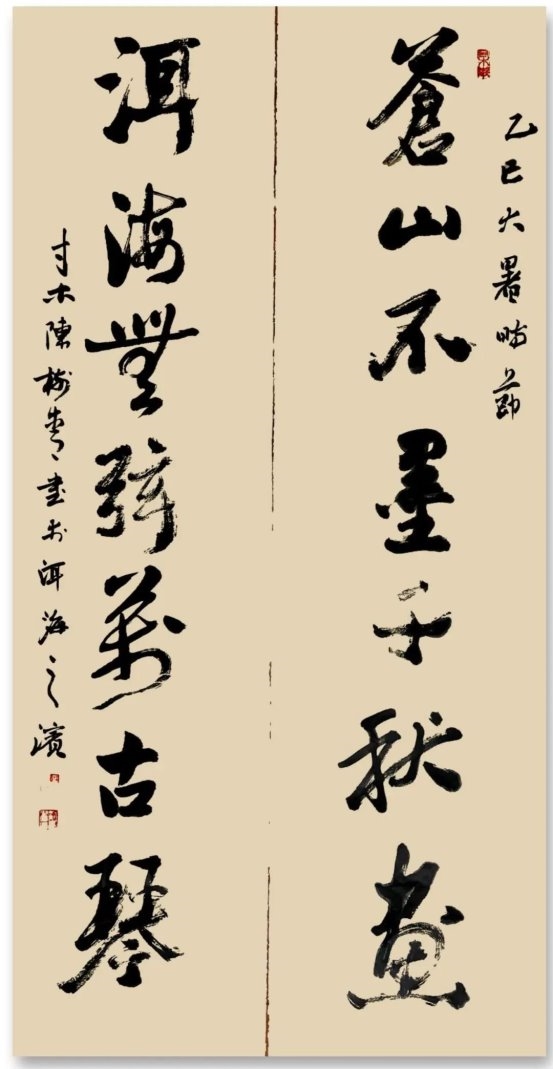 乙巳大暑時節
蒼山不墨千秋畫
洱海無弦萬古琴
寸木陳樹青書於洱海之濱